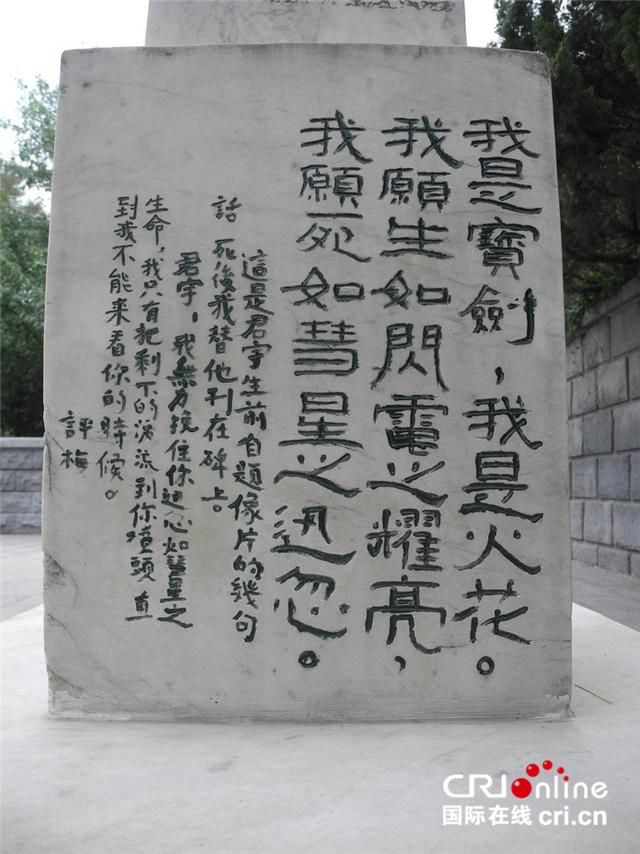 我是寶劍，我是火花。
我願生如閃電之耀亮，
我願死如彗星之迅忽。
這是君宇生前自題像片的幾句
話 死後我替他刊在碑上。
君宇，我無力挽住你迅忽如彗星之
生命，我只有把剩下的淚流到你墳頭 直
到我不能來看你的時候。
評梅
CRIonline
国际在线 cri.cn